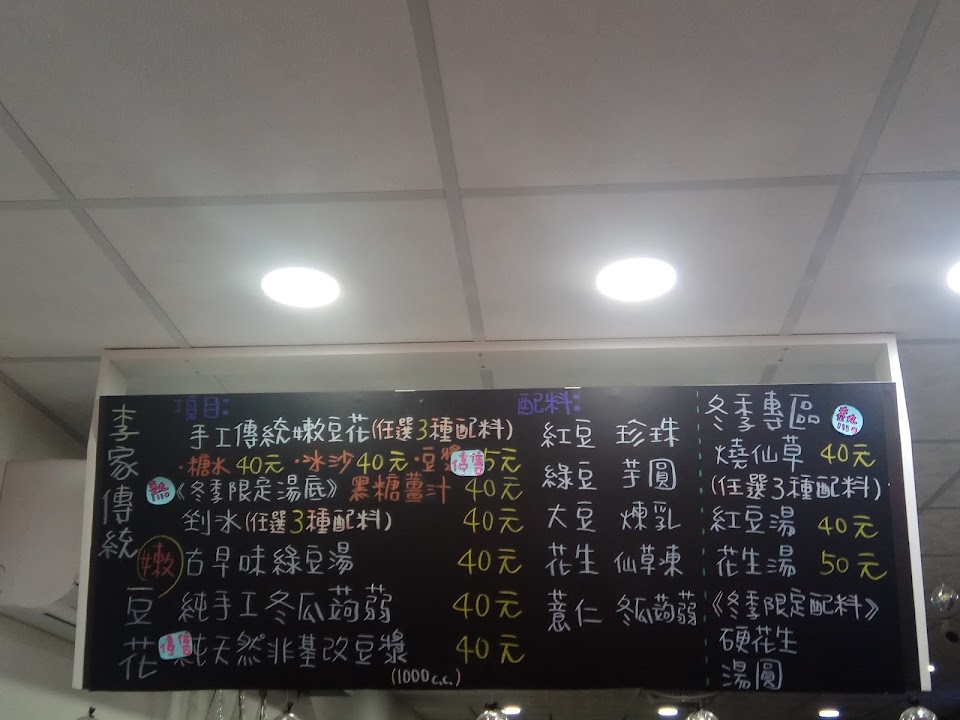 李家傳統嫩豆花
項目:
手工傳統嫩豆花(任選3種配料)
·糖水40元 ·冰沙40元 ·豆漿 5元
停售
《冬季限定湯底》黑糖薑汁 40元
剉冰(任選3種配料) 40元
古早味綠豆湯 40元
純手工冬瓜蒟蒻 40元
停售
純天然非基改豆漿 40元
(1000c.c.)
配料:
紅豆 珍珠
綠豆 芋圓
大豆 煉乳
花生 仙草凍
薏仁 冬瓜蒟蒻
冬季專區
燒仙草 40元
(任選3種配料)
紅豆湯 40元
花生湯 50元
《冬季限定配料》
硬花生
湯圓